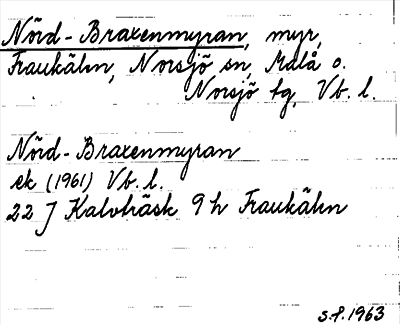 Nörd-Braxenmyran, myr,
Fraukälen, Norsjö sn, Malå o.
Norsjö tg, Vb. l.
Nörd-Braxenmyran
ek (1961) Vb. l.
22 J Kalvträsk 9 h Fraukälen
S.f. 1963